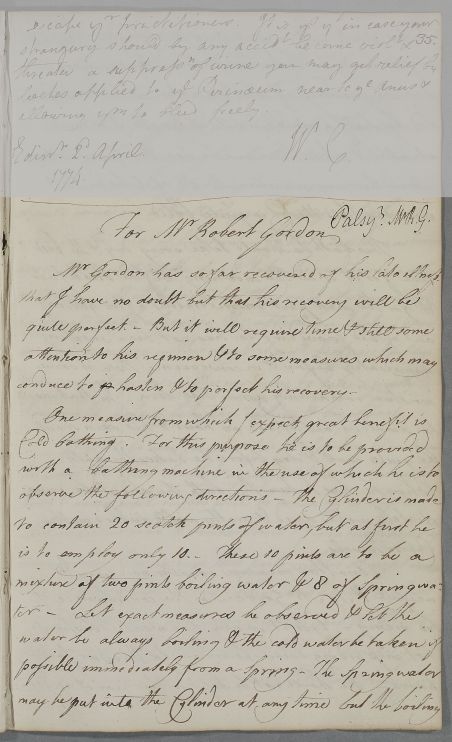 escape yr practitioners. It is yt yt in case your
strangury should by any accidt become violt & 35.
threaten a suppressn of urine you may get relief by
leeches applied to ye Perinœum near to ye Anus &
allowing ym to bleed freely.
Edinr. 2d April. W. C.
1774
For Mr Robert Gordon Palsy. Mr R. G.
Mr Gordon has so far recovered of his late illness
that I have no doubt but that his recovery will be
quite perfect. - But it will require time & still some
attention to his regimen & to some measures which may
conduce to hasten & to perfect his recovery. -
One measure from which I expect great benefit is
Cold bathing. For this purpose he is to be provided
with a bathing machine in the use of which he is to
observe the following directions - The Cylinder is made
to contain 20 scotch pints of water, but at first he
is to employ only 10. - These 10 pints are to be a
mixture of two pints boiling water & 8 of Spring wa-
ter - Let exact measures be observed & let the
water be always boiling & the cold water be taken if
possible immediately from a spring - The Spring water
may be put into the Cylinder at any time but the boiling